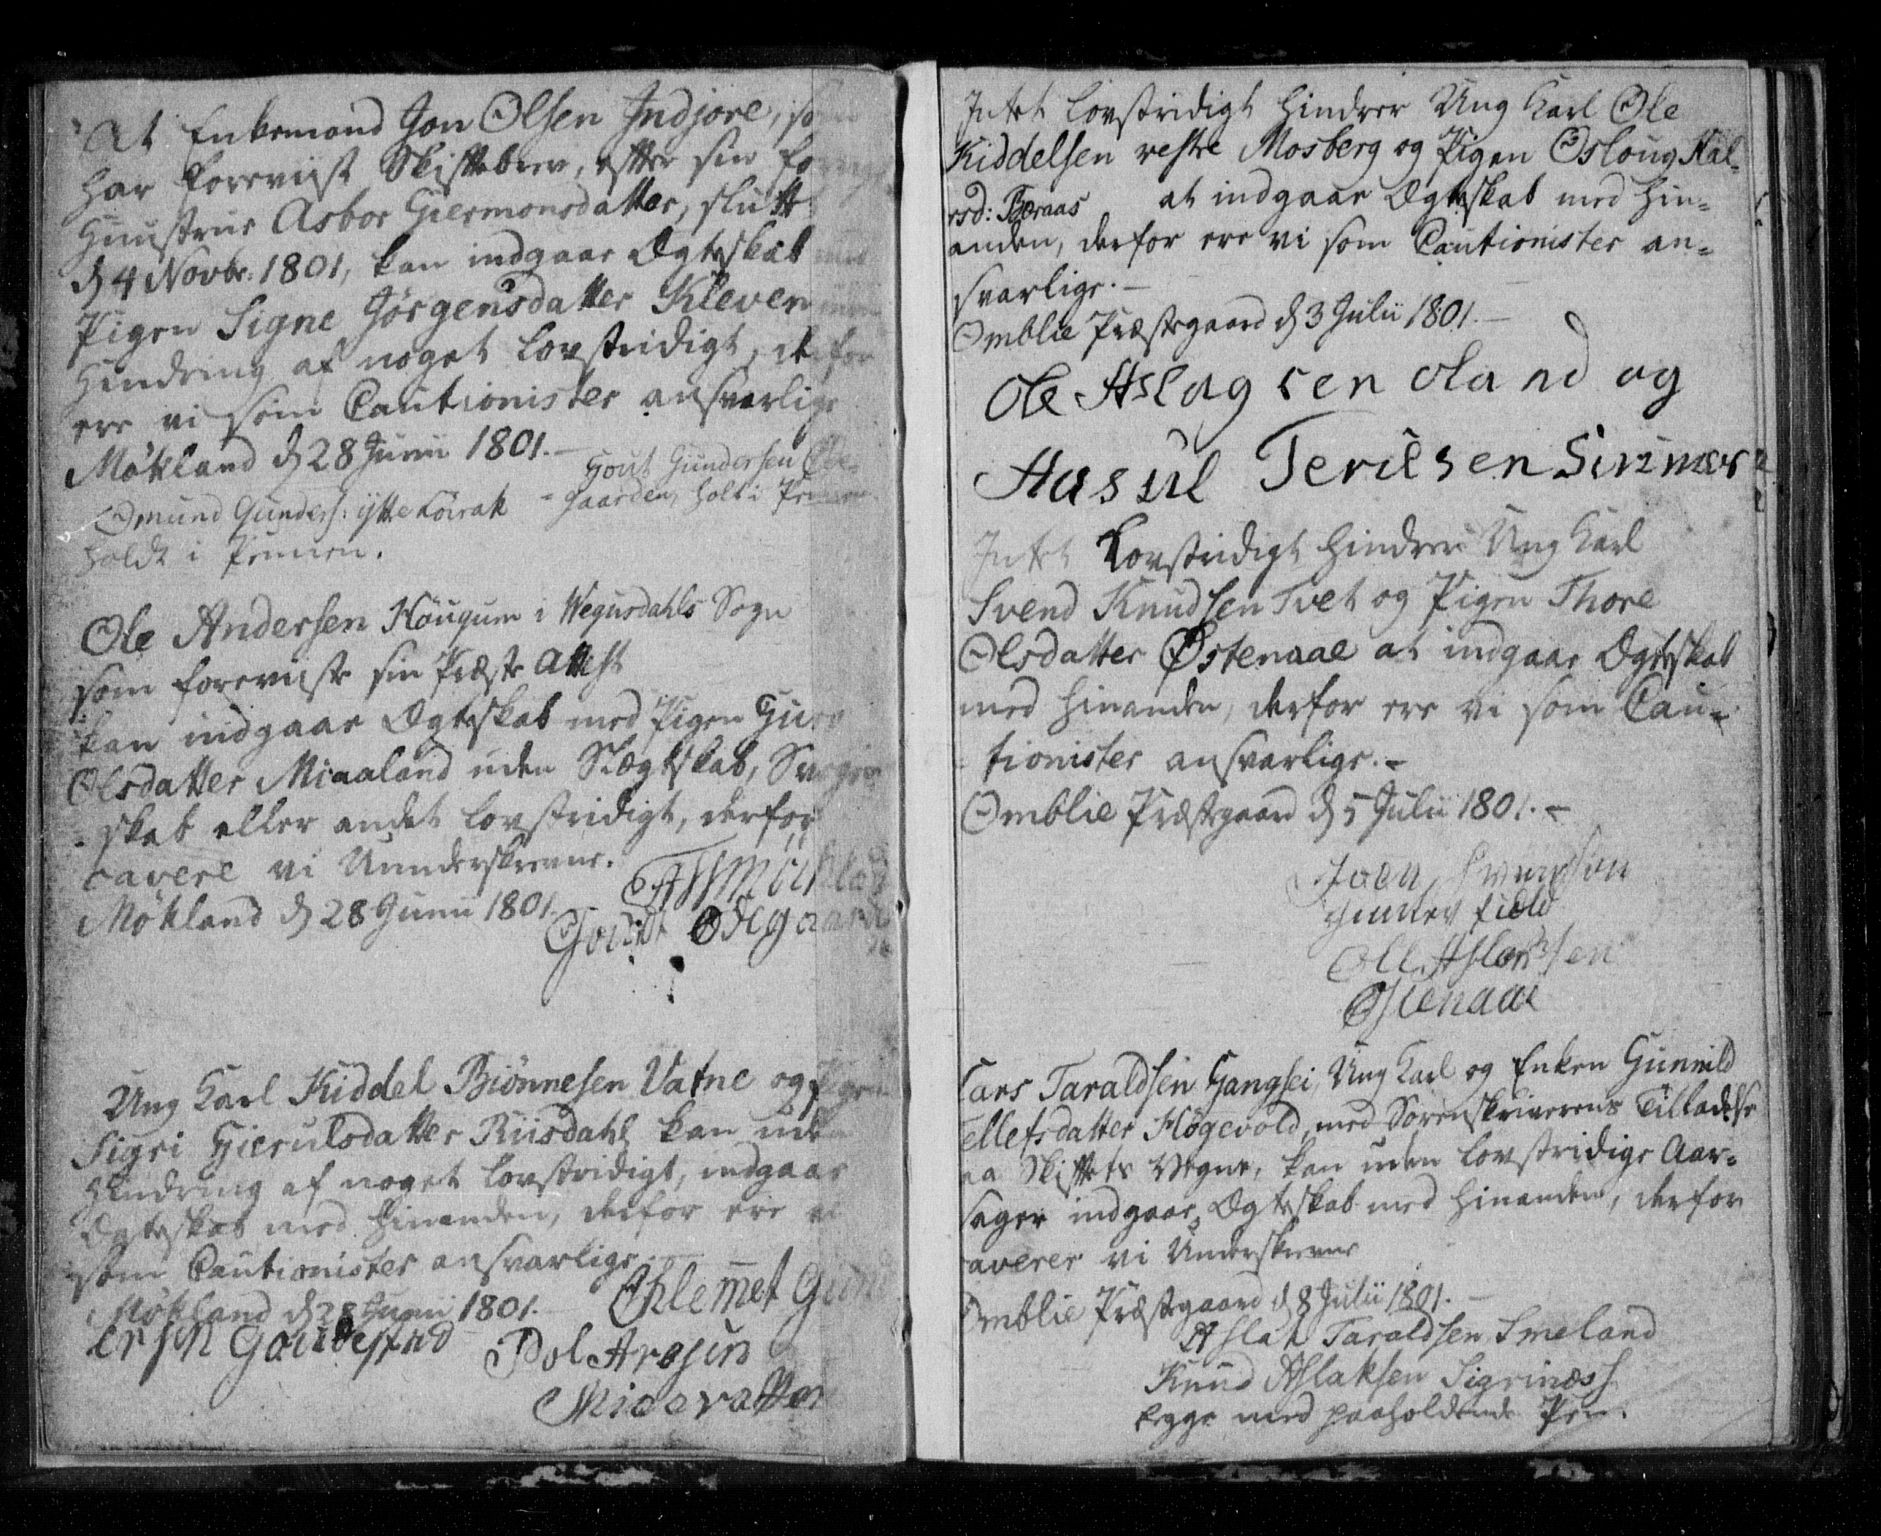 At Enkemand Jon Olsen Indjore, som
har foreviist Skiftebrev, efter sin forrige
Huustrue Asbor Giermonsdatter, sluttet
d 4 Novbr. 1801, kan indgaae Ægteskab med
Pigen Signe Jørgensdatter Kleven uden
Hindring af noget lovstridigt, derfor
ere vi som Cautionister ansvarlige
Møkland d 28 Junii 1801.-
Gout Gundersen Øde-
Omund Gunders: ytte Loirak - gaarden, holt i Pennen
holdt i Pennen.
Ole Andersen Høugum i Wegusdahls Sogn
som foreviiste sin Præste Attest
kan indgaae Ægteskab med Pigen Guro
Olsdatter Miaaland uden Slægtskab, Svoger-
skab eller andet lovstridigt, derfor
cavere vi Unnderskrevne.
Møkland d 28 Junii 1801.
Ødegaard
Ung Karl Kiddel Biønnesen Vatne og Pigen
Sigri Gierulsdatter Riisdahl kan uden
Hindring af noget lovstridigt, indgaae
Ægteskab med hinanden, derfor ere vi
som Cautionister ansvarlige.-
Møkland d 28 Junii 1801.- Ohlemet Gund
ersen
Pol Arosen
Intet lovstridigt hindrer Ung Karl Ole
Kiddelsen vestre Mosberg og Pigen Osloug Hal-
rsd: Beraas at indgaae Ægteskab med hin-
anden, derfor ere vi som Cautionister an-
svarlige.-
Omblie Præstegaard d 3 Julii 1801.-
Ole Aslagsen oland og
Intet Lovstridigt hindrer Ung Karl
Svend Knudsen Tvet og Pigen Thore
Olsdatter Østenaae at indgaae Ægteskab
med hinanden, derfor ere vi som Cau-
tionister ansvarlige.-
Omblie Præstegaard d 5 Julii 1801.-
Joen Svendson
field
Østenaae
Lars Taraldsen Gangsei Ung Karl og Enken Gunnild
Tellefsdatter Høgevold, med Sorenskriverens Tilladelse
paa Skiftets Vegne, kan uden lovstridige Aar-
sager indgaae Ægteskab med hinanden, derfor
caverer vi Underskrevne
Omblie Præstegaard d 8 Julii 1801.-
Aslak Taraldsen Smeland
Knud Aslaksen Sigrinæss
begge med paaholdende Pen.